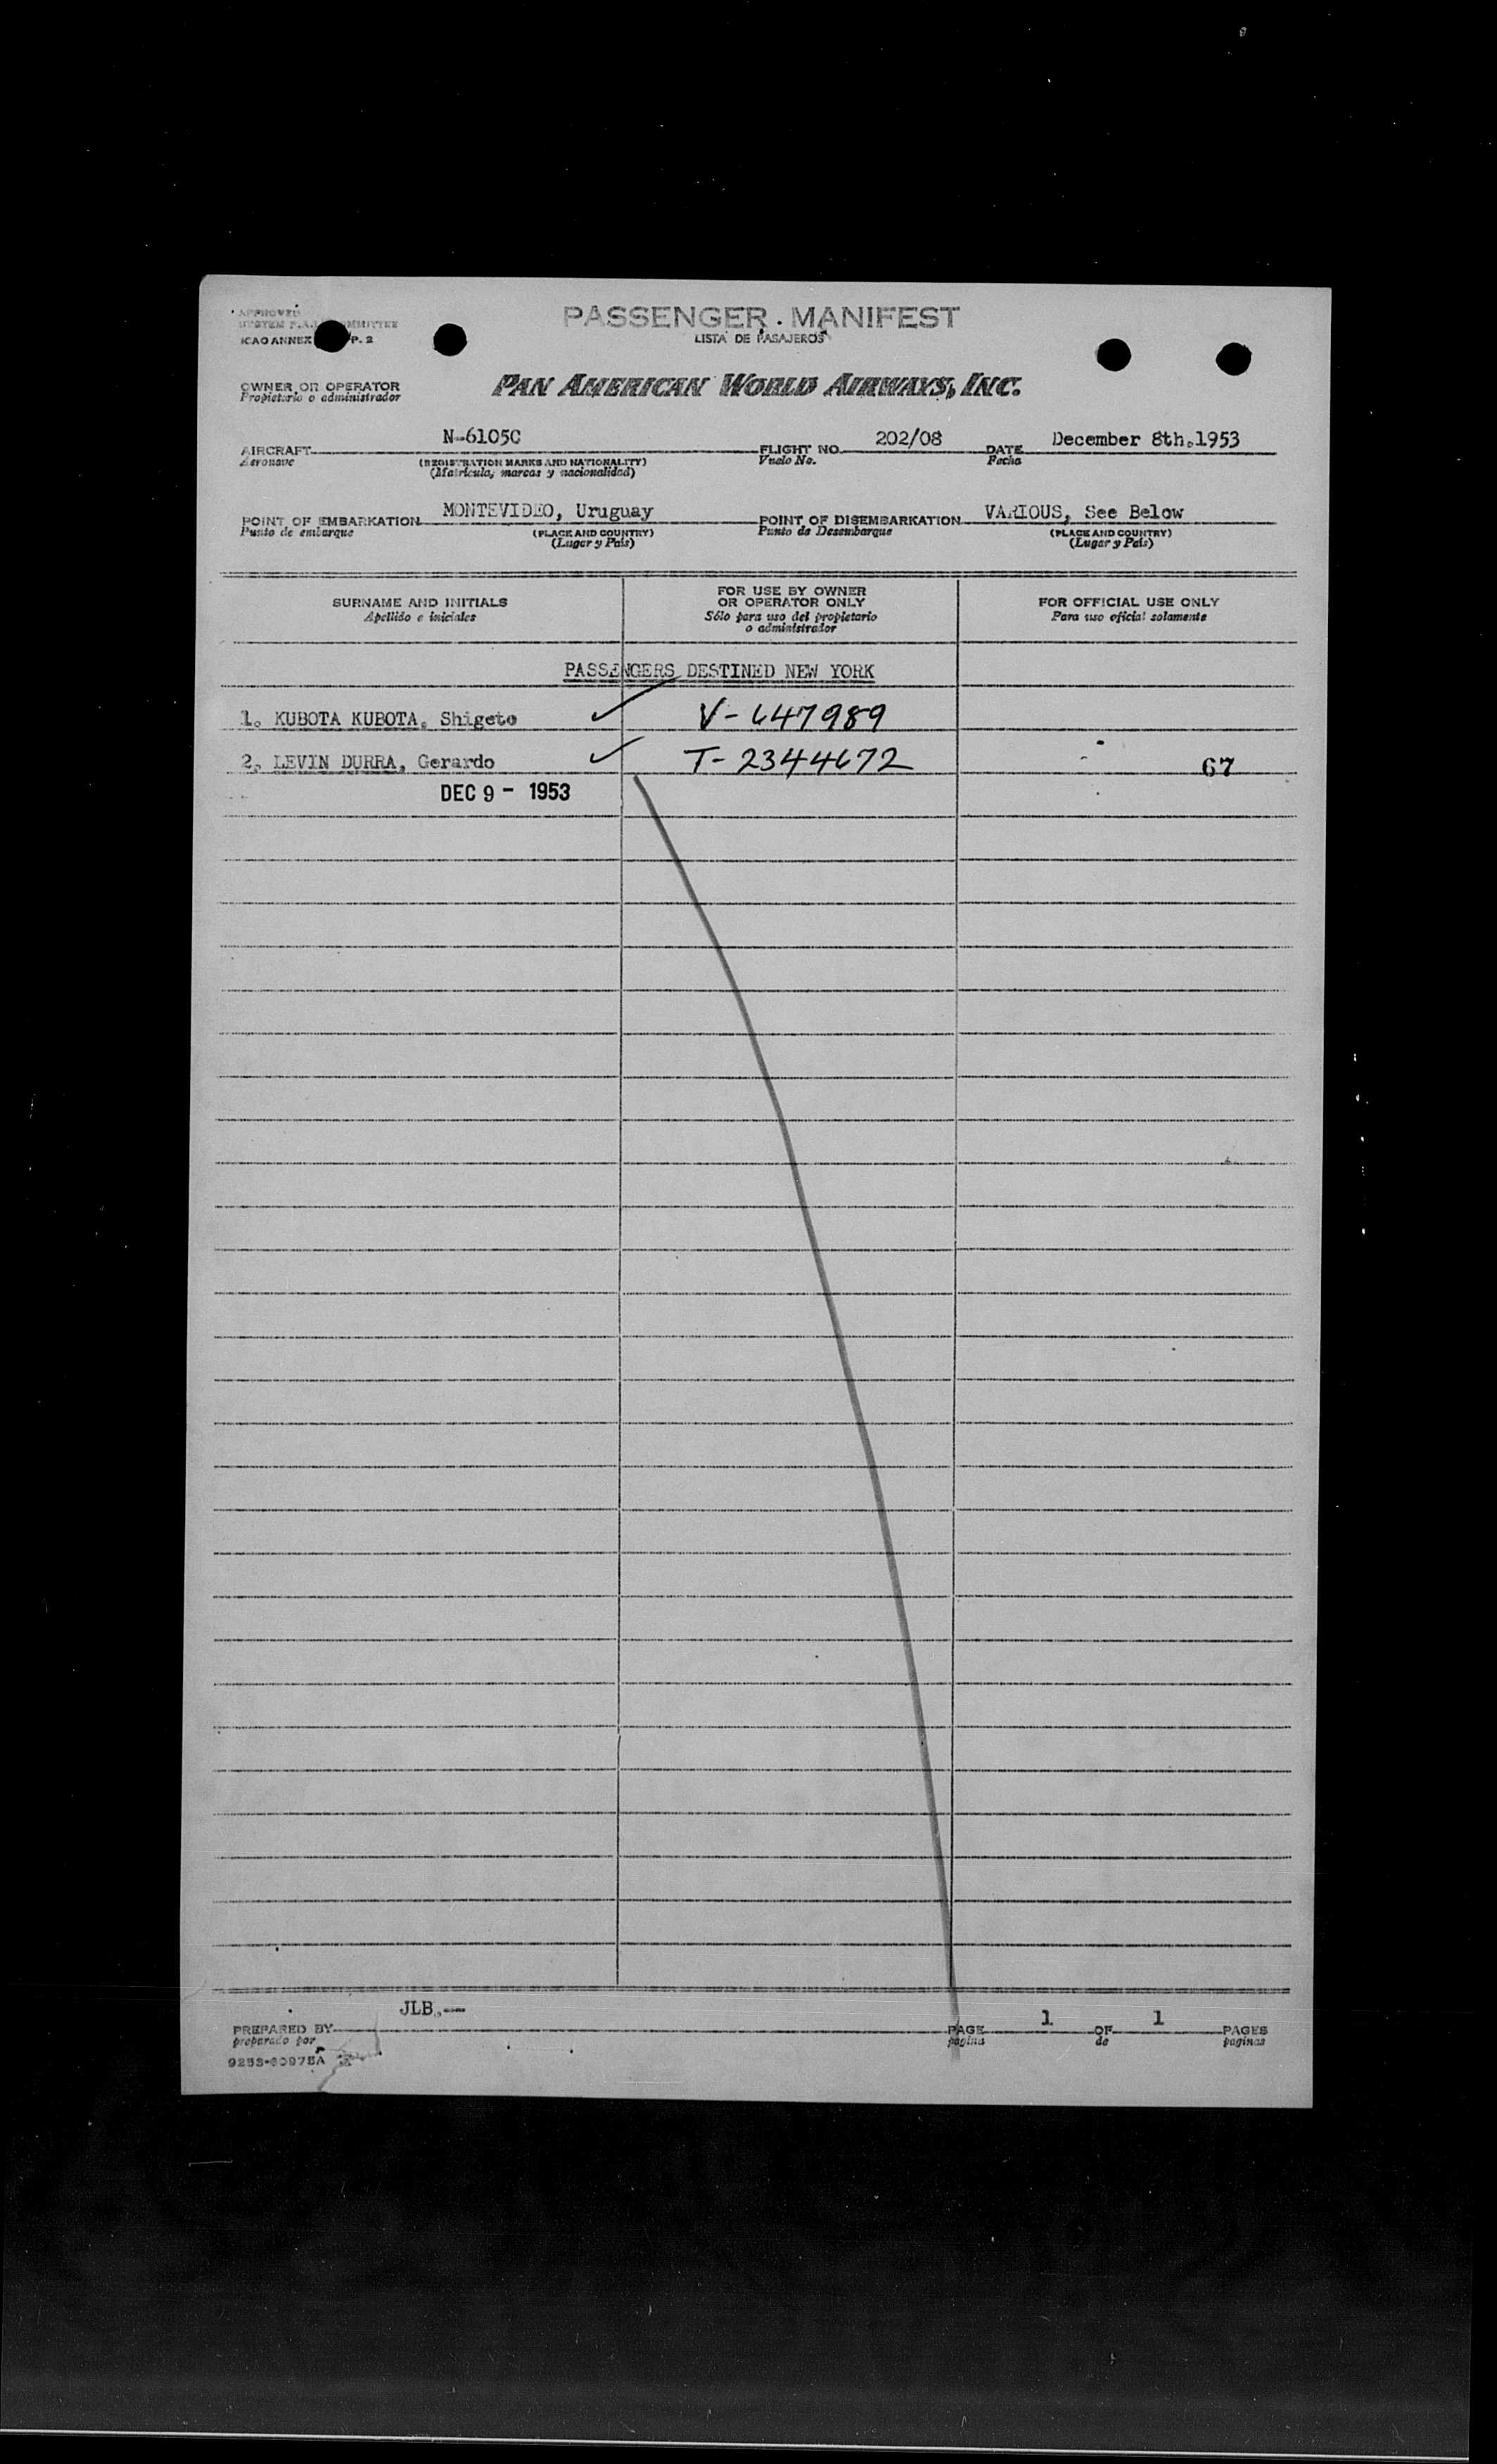 APPROVED
ICAO ANNEX P. 2
PASSENGER MANIFEST
LISTA DE PASAJEROS
OWNER OR OPERATOR
Propietario o administrador
PAN AMERICAN WORLD AIRWAYS, INC.
AIRCRAFT N-6105C FLIGHT NO. 202/08 DATE December 8th.1953
Aeronave (REGISTRATION MARKS AND NATIONALITY) Vuelo No. Fecha
(Matricula, marcas y nacionalidad)
POINT OF EMBARKATION MONTEVIDEO, Uruguay POINT OF DISEMBARKATION VARIOUS, See Below
Punto de embarque (PLACE AND COUNTRY) Punto de Desembarque (PLACE AND COUNTRY)
(Lugar y País) (Lugar y País)
SURNAME AND INITIALS FOR USE BY OWNER OR OPERATOR ONLY FOR OFFICIAL USE ONLY
Apellido e iniciales Sólo para uso del propietario o administrador Para uso oficial solamente
PASSENGERS DESTINED NEW YORK
1. KUBOTA KUBOTA, Shigeto V-647989
2. LEVIN DURRA, Gerardo T-2344672 67
DEC 9 - 1953
JLB.--
PREPARED BY PAGE 1 OF 1 PAGES
preparado por página de paginas